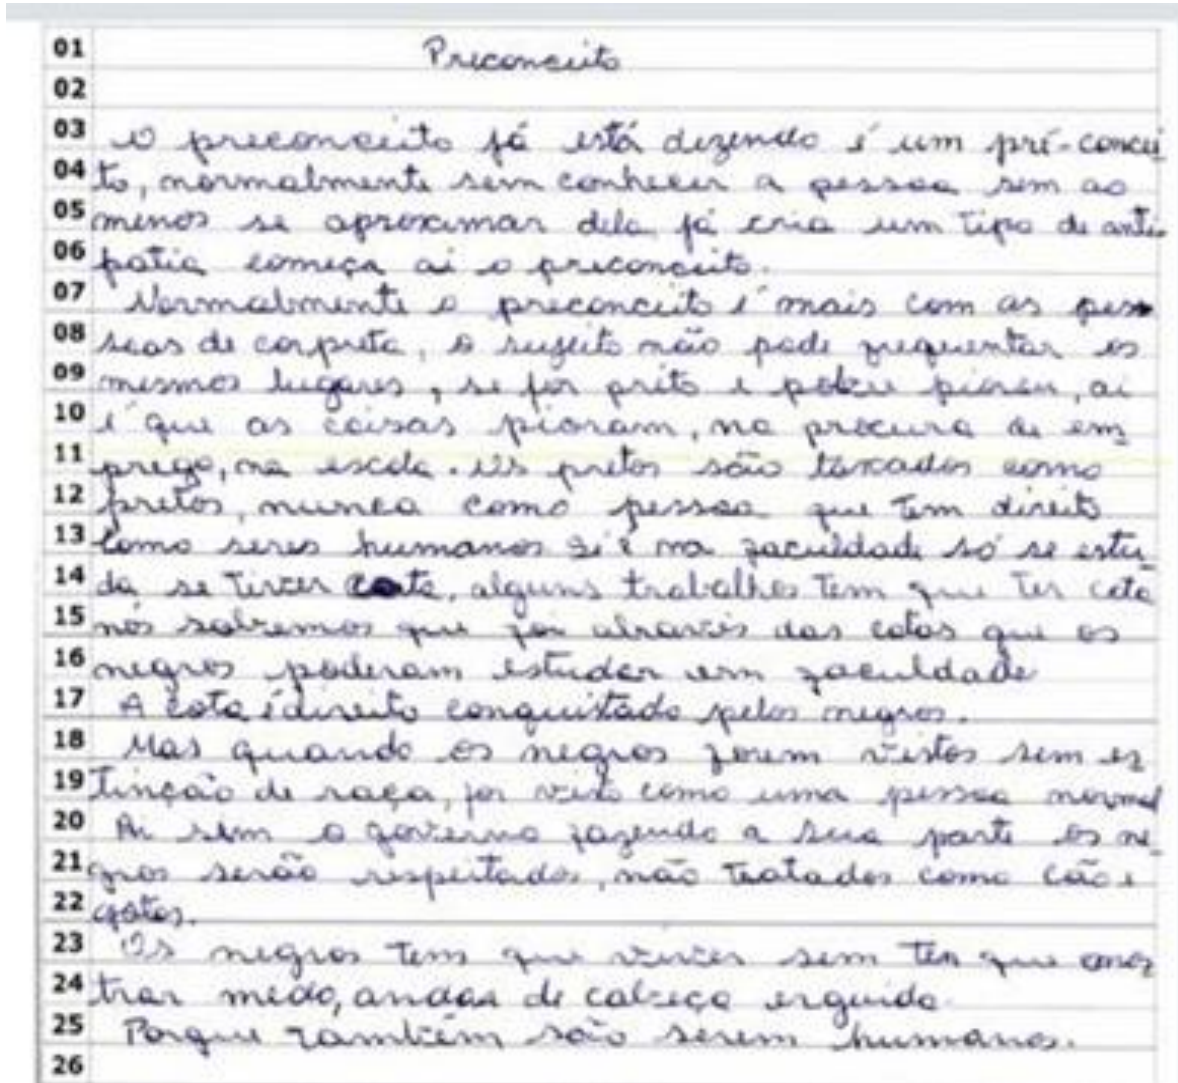 01 Preconceito
02
03 O preconceito já está dizendo é um pré-concei
04 to, normalmente sem conhecer a pessoa sem ao
05 menos se aproximar dela já cria um tipo de anti-
06 patia começa ai o preconceito.
07 Normalmente o preconceito é mais com as pes
08 soas de cor preta, o sujeito não pode frequentar os
09 mesmos lugares, se for preto e pobre piorou, ai
10 é que as coisas pioram, na procura de em_
11 prego, na escola. Os pretos são taxados como
12 pretos, nunca como pessoa que tem direito
13 como seres humanos na faculdade só se estu_
14 da se tiver cota, alguns trabalhos tem que ter cota
15 nós sabemos que foi através das cotas que os
16 negros poderam estudar em faculdade
17 A cota é direito conquistado pelos negros.
18 Mas quando os negros forem vistos sem es
19 tinção de raça, for visto como uma pessoa normal
20 Ai sim o governo fazendo a sua parte os ne_
21 gros serão respeitados, não tratados como cão e
22 gatos.
23 Os negros tem que viver sem ter que
24 trar medo, andar de cabeça erguida.
25 Porque também são serem humanos.
26